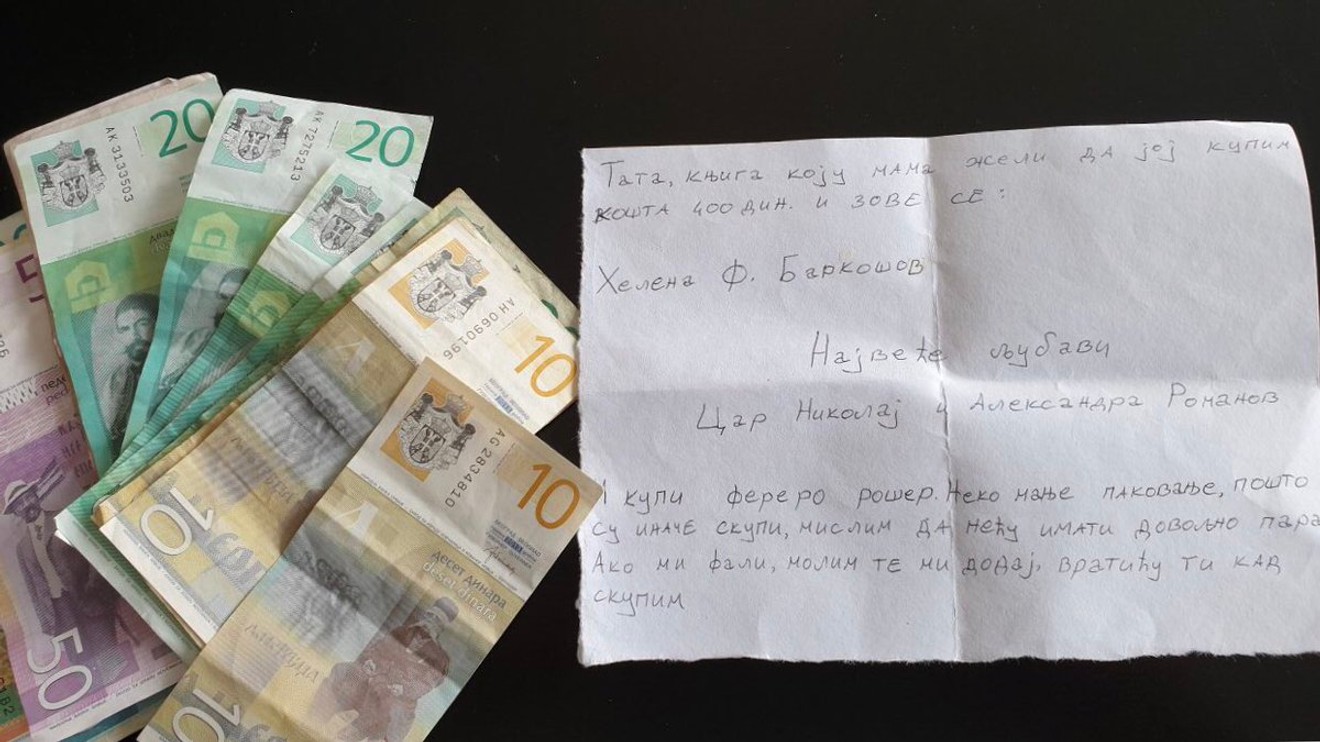 20
АК 3133503
20
АК 7275213
10
АН 0690196
10
AG 2834810
ДЕСЕТ ДИНАРА
deset dinara
10
10
50
Тата, књига коју мама жели да јој купим
кошта 400 дин. и зове се:
Хелена Ф. Баркошов
Највеће љубави
Цар Николај и Александра Романов
И купи фереро рошер. Неко мање паковање, пошто
су иначе скупи, мислим да нећу имати довољно пара
Ако ми фали, молим те ми додај, вратићу ти кад
скупим